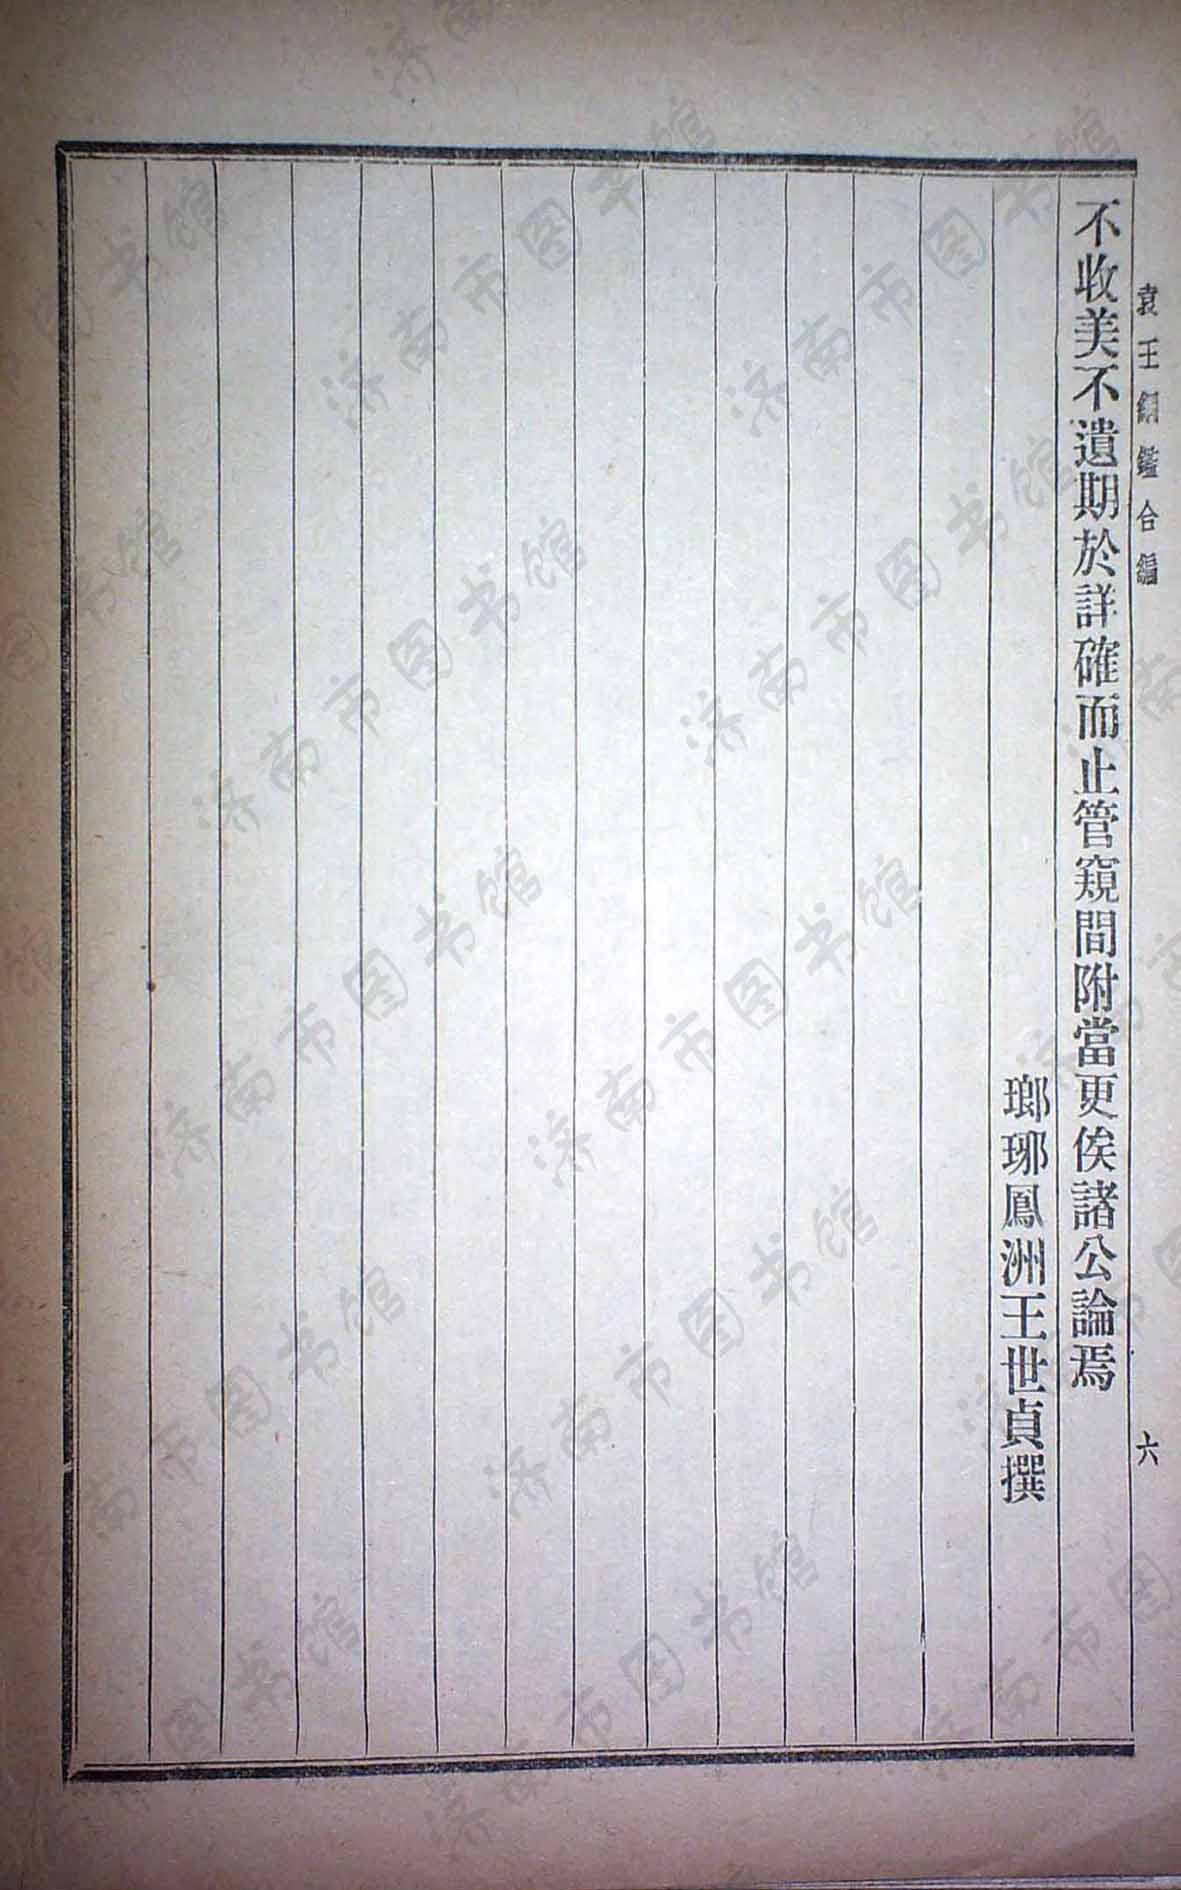 袁王綱鑑合編
六
不收美不遺期於詳確而止管窺間附當更俟諸公論焉
瑯琊鳳洲王世貞撰
济南市图书馆